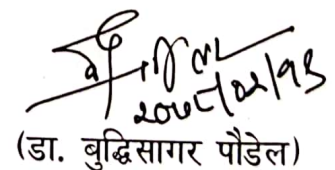 २०७८/०२/१३
(डा. बुद्धिसागर पौडेल)